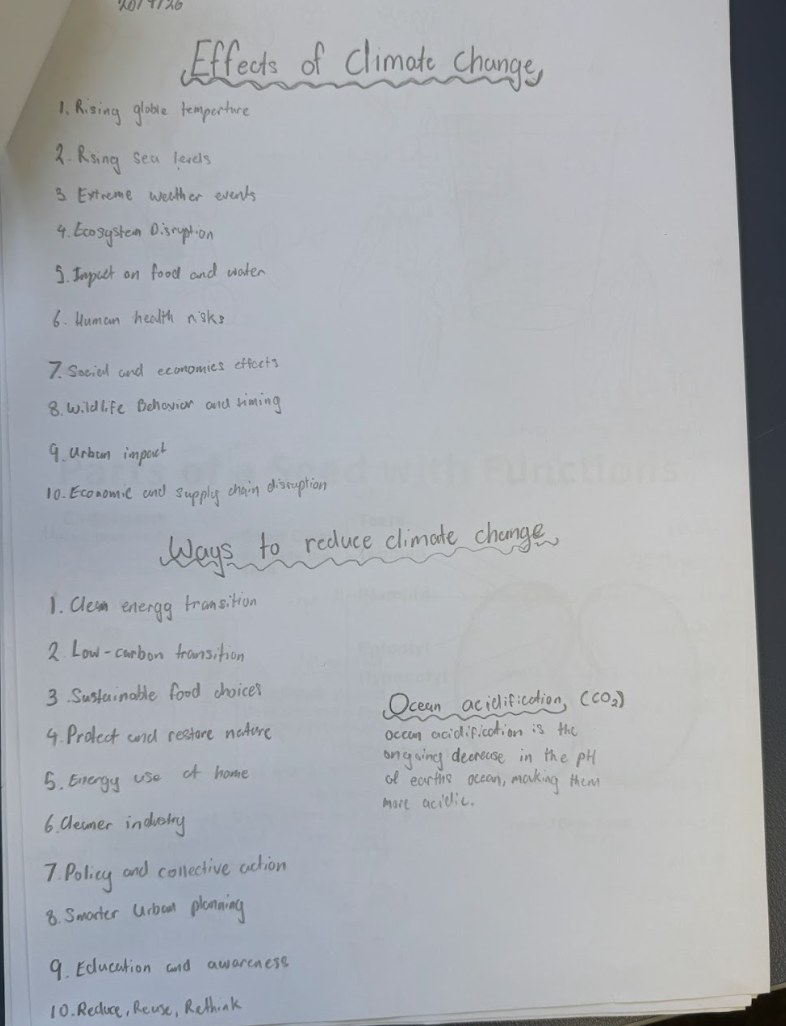 20/4/26
Effects of Climate Change
1. Rising globle temperture
2. Rsing Sea levels
3 Extreme weather events
4. Ecosystem Disruption
5. Impact on food and water
6. Human health risks
7. Social and economics effects
8. Wildlife Behavior and timing
9. Urban impact
10. Economic and supply chain disruption
Ways to reduce climate change
1. Clean energy transition
2 Low-carbon transition
3 .Sustainable food choices
4. Protect and restore nature
5. Energy use at home
6. Cleaner industry
7. Policy and collective action
8. Smarter Urban planning
9. Education and awareness
10. Reduce, Reuse, Rethink
Ocean acidification, (CO2)
ocean acidification is the
ongoing decrease in the pH
of earths ocean, making them
more acidic.
Parts of a Seed with Functions